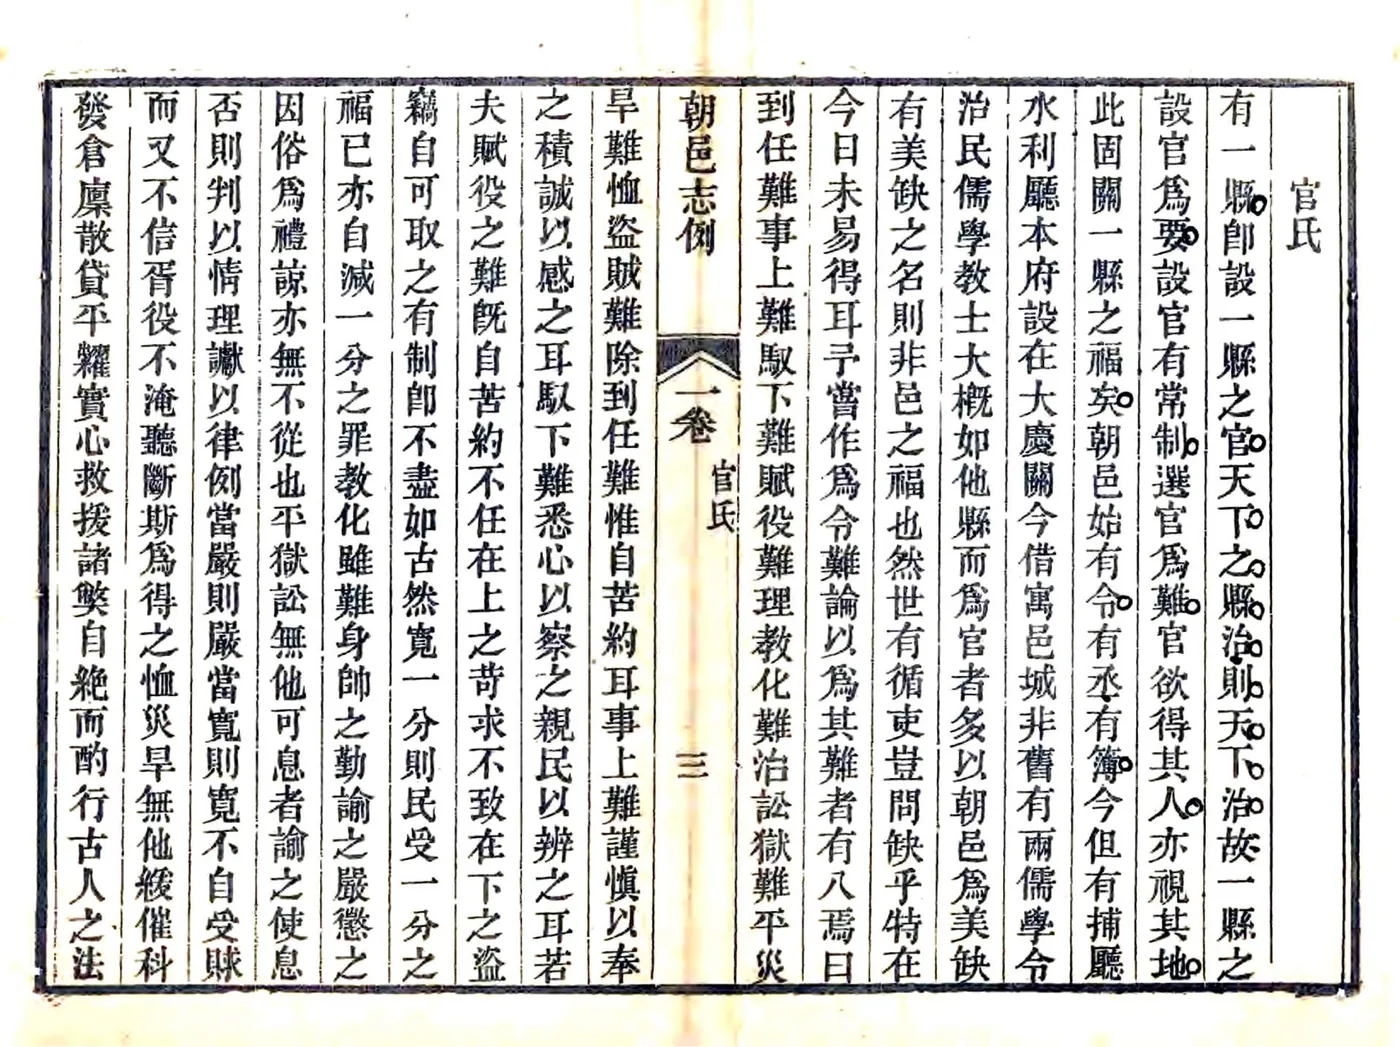 官氏
有一縣卽設一縣之官天下之縣治則天下治故一縣之
設官爲要設官有常制選官爲難官欲得其人亦視其地
此固關一縣之福矣朝邑始有令有丞有簿今但有捕廳
水利廳本府設在大慶關今借寓邑城非舊有兩儒學令
治民儒學敎士大槪如他縣而爲官者多以朝邑爲美缺
有美缺之名則非邑之福也然世有循吏豈問缺乎特在
今日未易得耳予嘗作爲令難論以爲其難者有八焉曰
到任難事上難馭下難賦役難理敎化難治訟獄難平災
朝邑志例
一卷
官氏
三
旱難恤盜賊難除到任難惟自苦約耳事上難謹愼以奉
之積誠以感之耳馭下難悉心以察之親民以辨之耳若
夫賦役之難旣自苦約不任在上之苛求不致在下之盜
竊自可取之有制卽不盡如古然寬一分則民受一分之
福已亦自減一分之罪敎化雖難身帥之勤諭之嚴懲之
因俗爲禮諒亦無不從也平獄訟無他可息者諭之使息
否則判以情理讞以律例當嚴則嚴當寬則寬不自受賕
而又不信胥役不淹聽斷斯爲得之恤災旱無他緩催科
發倉廩散貸平糶實心救援諸獘自絶而酌行古人之法